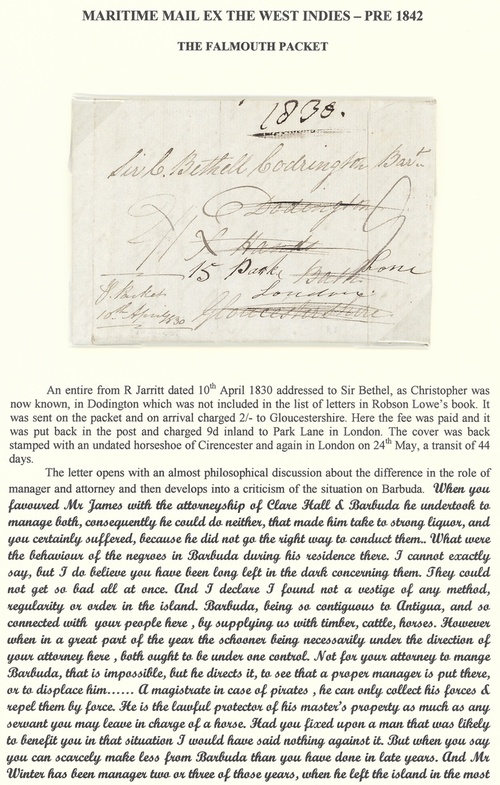 MARITIME MAIL EX THE WEST INDIES – PRE 1842
THE FALMOUTH PACKET
1830.
Sir C. Bethell Codrington Bart.
Dodington
Hands
15 Park Bath Lane
London
Gloucestershire
P. Packet
10th April 1830
An entire from R Jarritt dated 10th April 1830 addressed to Sir Bethel, as Christopher was
now known, in Dodington which was not included in the list of letters in Robson Lowe's book. It
was sent on the packet and on arrival charged 2/- to Gloucestershire. Here the fee was paid and it
was put back in the post and charged 9d inland to Park Lane in London. The cover was back
stamped with an undated horseshoe of Cirencester and again in London on 24th May, a transit of 44
days.
The letter opens with an almost philosophical discussion about the difference in the role of
manager and attorney and then develops into a criticism of the situation on Barbuda. When you
favoured Mr James with the attorneyship of Clare Hall & Barbuda he undertook to
manage both, consequently he could do neither, that made him take to strong liquor, and
you certainly suffered, because he did not go the right way to conduct them.. What were
the behaviour of the negroes in Barbuda during his residence there. I cannot exactly
say, but I do believe you have been long left in the dark concerning them. They could
not get so bad all at once. And I declare I found not a vestige of any method,
regularity or order in the island. Barbuda, being so contiguous to Antigua, and so
connected with your people here , by supplying us with timber, cattle, horses. However
when in a great part of the year the schooner being necessarily under the direction of
your attorney here , both ought to be under one control. Not for your attorney to mange
Barbuda, that is impossible, but he directs it, to see that a proper manager is put there,
or to displace him...... A magistrate in case of pirates , he can only collect his forces &
repel them by force. He is the lawful protector of his master's property as much as any
servant you may leave in charge of a horse. Had you fixed upon a man that was likely
to benefit you in that situation I would have said nothing against it. But when you say
you can scarcely make less from Barbuda than you have done in late years. And Mr
Winter has been manager two or three of those years, when he left the island in the most